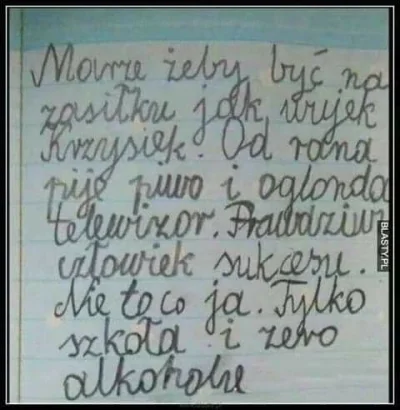 Marze żeby być na
zasiłku jak wujek
Krzysiek. Od rana
pije piwo i oglonda
telewizor. Prawdziwy
człowiek sukcesu.
Nie to co ja. Tylko
szkoła i zero
alkoholu
BLASTY.PL